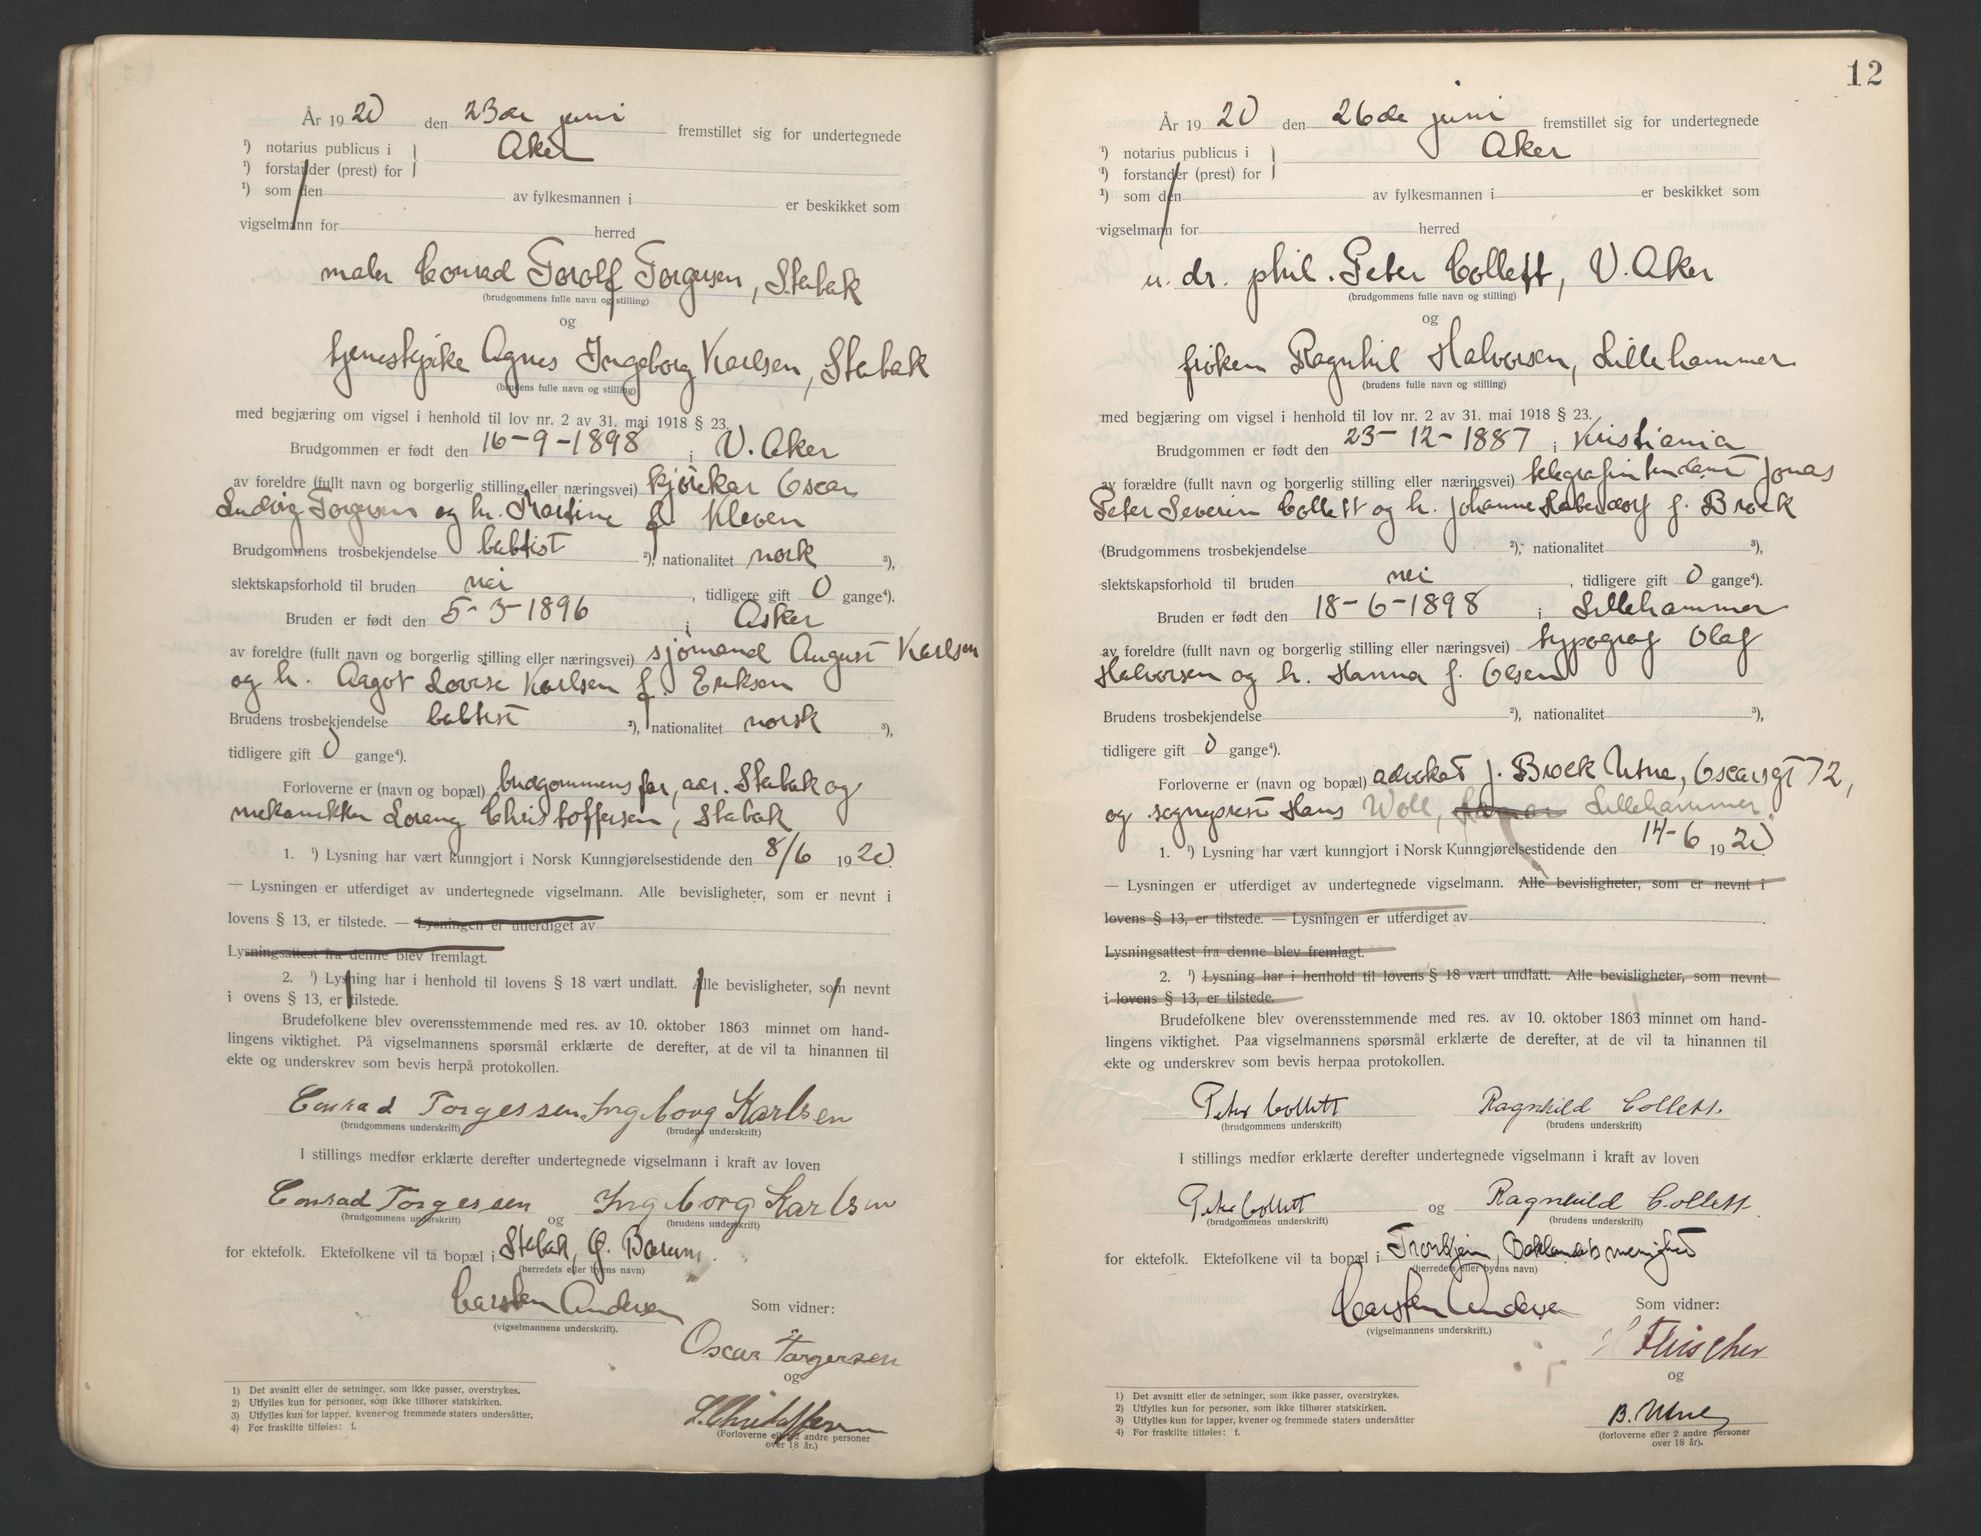 År 1920 den 23de juni fremstillet sig for undertegnede
¹) notarius publicus i Aker
¹) forstander (prest) for
¹) som den av fylkesmannen i er beskikket som
vigselmann for herred
maler Conrad Torolf Torgersen, Stabak
(brudgommens fulle navn og stilling)
og
tjenestepike Agnes Ingeborg Karlsen, Stabak
(brudens fulle navn og stilling)
med begjæring om vigsel i henhold til lov nr. 2 av 31. mai 1918 § 23.
Brudgommen er født den 16-9-1898 i V. Aker
av foreldre (fullt navn og borgerlig stilling eller næringsvei) kjørekar Oscar
Ludvig Torgersen og h. Martine f. Kleven
Brudgommens trosbekjendelse babtist ²), nationalitet norsk ³),
slektskapsforhold til bruden nei, tidligere gift 0 gange⁴).
Bruden er født den 5-3-1896 i Asker
av foreldre (fullt navn og borgerlig stilling eller næringsvei) sjømand August Karlsen
og h. Aagot Lovise Karlsen f. Eriksen
Brudens trosbekjendelse babtist ²), nationalitet norsk ³),
tidligere gift 0 gange⁴).
Forloverne er (navn og bopæl) brudgommens far, adr. Stabak og
mekanikker Lorang Christoffersen, Stabak
1. ¹) Lysning har vært kunngjort i Norsk Kunngjørelsestidende den 8/6 1920.
— Lysningen er utferdiget av undertegnede vigselmann. Alle bevisligheter, som er nevnt i
lovens § 13, er tilstede. — Lysningen er utferdiget av
Lysningsattest fra denne blev fremlagt.
2. ¹) Lysning har i henhold til lovens § 18 vært undlatt. Alle bevisligheter, som nevnt
i ovens § 13, er tilstede.
Brudefolkene blev overensstemmende med res. av 10. oktober 1863 minnet om hand-
lingens viktighet. På vigselmannens spørsmål erklærte de derefter, at de vil ta hinannen til
ekte og underskrev som bevis herpå protokollen.
Conrad Torgessen Ingeborg Karlsen
(brudgommens underskrift) (brudens underskrift)
I stillings medfør erklærte derefter undertegnede vigselmann i kraft av loven
Conrad Torgessen og Ingeborg Karlsen
(brudgommens underskrift) (brudens underskrift)
for ektefolk. Ektefolkene vil ta bopæl i Stabak, Ø. Bærum.
(herredets eller byens navn)
Carsten Andersen Som vidner:
(vigselmannens underskrift).
Oscar Torgersen
og
L. Christoffersen
(Forloverne eller 2 andre personer
over 18 år.)
1) Det avsnitt eller de setninger, som ikke passer, overstrykes.
2) Utfylles kun for personer, som ikke tilhører statskirken.
3) Utfylles kun for lapper, kvener og fremmede staters undersåtter.
4) For fraskilte tilføies: f.
12
År 1920 den 26de juni fremstillet sig for undertegnede
¹) notarius publicus i Aker
¹) forstander (prest) for
¹) som den av fylkesmannen i er beskikket som
vigselmann for herred
u. dr. phil. Peter Collett, V. Aker
(brudgommens fulle navn og stilling)
og
frøken Ragnhil Halvorsen, Lillehammer
(brudens fulle navn og stilling)
med begjæring om vigsel i henhold til lov nr. 2 av 31. mai 1918 § 23.
Brudgommen er født den 23-12-1887 i Kristiania
av forældre (fullt navn og borgerlig stilling eller næringsvei) telegrafintendant Jonas
Peter Severin Collett og h. Johanne f. Brock
(Brudgommens trosbekjendelse ²), nationalitet ³),
slektskapsforhold til bruden nei, tidligere gift 0 gange⁴).
Bruden er født den 18-6-1898 i Lillehammer
av foreldre (fullt navn og borgerlig stilling eller næringsvei) typograf Olaf
Halvorsen og h. Hanna f. Olsen
Brudens trosbekjendelse ²), nationalitet ³),
tidligere gift 0 gange⁴).
Forloverne er (navn og bopæl) advokat J. Brock Utne, Oscarsgt 72,
og sogneprest Hans Woll, Lillehammer.
1. ¹) Lysning har vært kunngjort i Norsk Kunngjørelsestidende den 14-6 1920
— Lysningen er utferdiget av undertegnede vigselmann. Alle bevisligheter, som er nevnt i
lovens § 13, er tilstede. — Lysningen er utferdiget av
Lysningsattest fra denne blev fremlagt.
2. ¹) Lysning har i henhold til lovens § 18 vært undlatt. Alle bevisligheter, som nevnt
i lovens § 13, er tilstede.
Brudefolkene blev overensstemmende med res. av 10. oktober 1863 minnet om hand-
lingens viktighet. Paa vigselmannens spørsmål erklærte de derefter, at de vil ta hinannen til
ekte og underskrev som bevis herpaa protokollen.
Peter Collett Ragnhild Collett.
(brudgommens underskrift) (brudens underskrift)
I stillings medfør erklærte derefter undertegnede vigselmann i kraft av loven
Peter Collett og Ragnhild Collett.
(brudgommens underskrift) (brudens underskrift)
for ektefolk. Ektefolkene vil ta bopæl i Trondhjem, Baklandets menighet
(herredets eller byens navn)
Carsten Andersen Som vidner:
(vigselmannens underskrift.)
Fleischer
og
B. Utne
(forloverne eller 2 andre personer
over 18 år).
1) Det avsnitt eller de setninger, som ikke passer, overstrykes.
2) Utfylles kun for personer, som ikke tilhører statskirken.
3) Utfylles kun for lapper, kvener og fremmede staters undersåtter
4) For fraskilte tilføies: f.